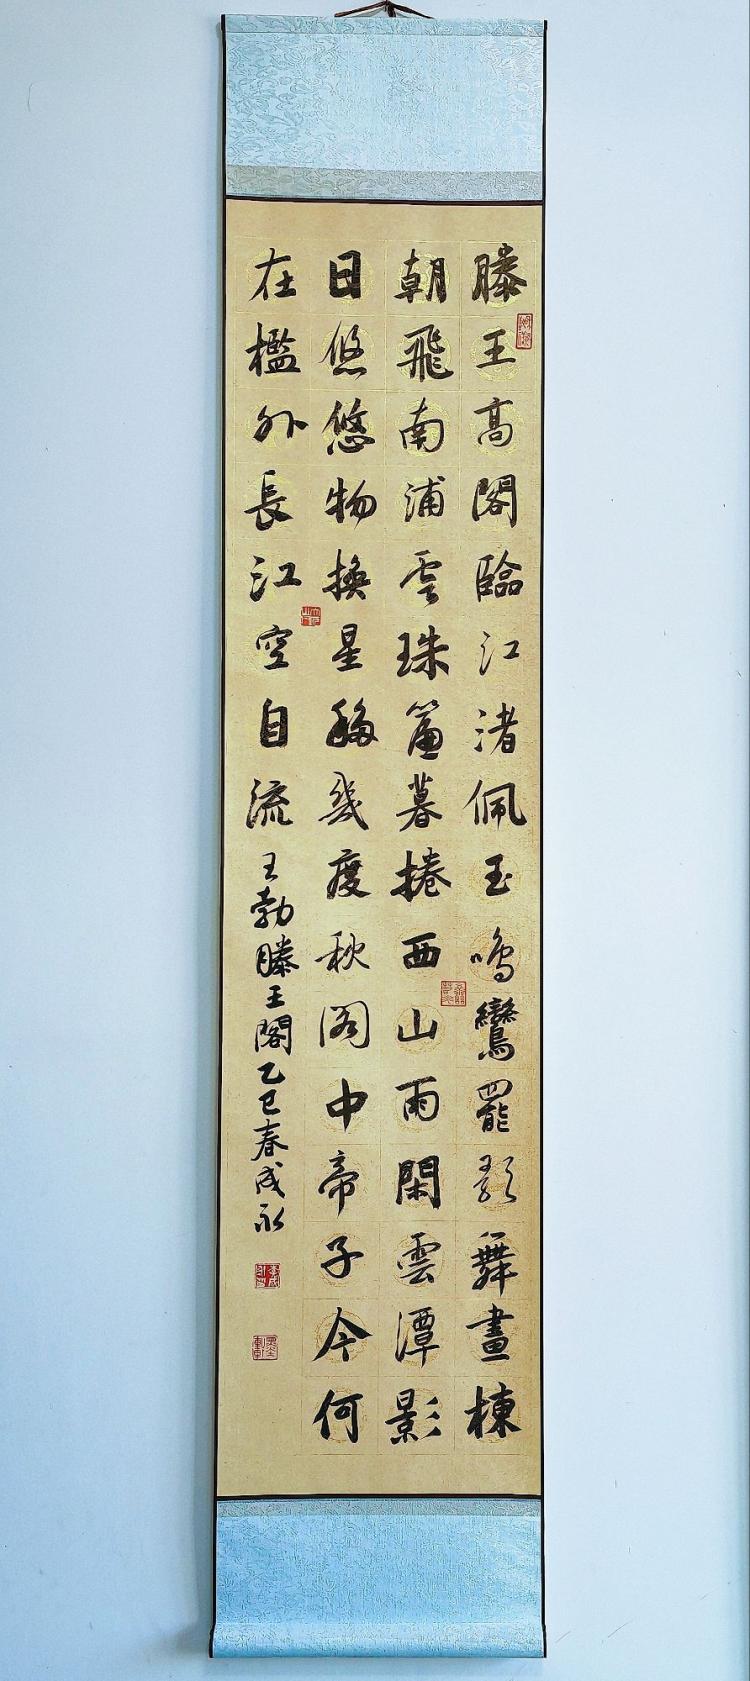 滕王高閣臨江渚佩玉鳴鸞罷歌舞畫棟
朝飛南浦雲珠簾暮捲西山雨閑雲潭影
日悠悠物換星移幾度秋閣中帝子今何
在檻外長江空自流王勃滕王閣乙巳春成永